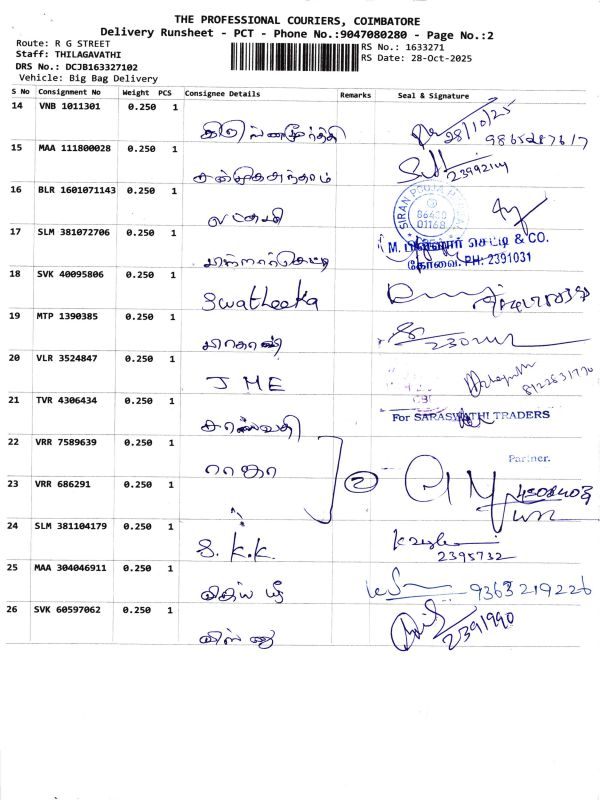 THE PROFESSIONAL COURIERS, COIMBATORE
Delivery Runsheet - PCT - Phone No.:9047080280 - Page No.:2
Route: R G STREET
Staff: THILAGAVATHI
DRS No.: DCJB163327102
Vehicle: Big Bag Delivery
RS No.: 1633271
RS Date: 28-Oct-2025
S No Consignment No Weight PCS Consignee Details Remarks Seal & Signature
14 VNB 1011301 0.250 1
28/10/25
9865287617
15 MAA 111800028 0.250 1
16 BLR 1601071143 0.250 1
லட்சுமி
17 SLM 381072706 0.250 1
செட்டி & CO.
கோவை. PH: 2391031
18 SVK 40095806 0.250 1
Swatheeka
19 MTP 1390385 0.250 1
20 VLR 3524847 0.250 1
JME
21 TVR 4306434 0.250 1
சரஸ்வதி
For SARASWATHI TRADERS
Partner.
22 VRR 7589639 0.250 1
ராஜா
2
23 VRR 686291 0.250 1
24 SLM 381104179 0.250 1
S.K.K.
2395732
25 MAA 304046911 0.250 1
9363219226
26 SVK 60597062 0.250 1
2391990